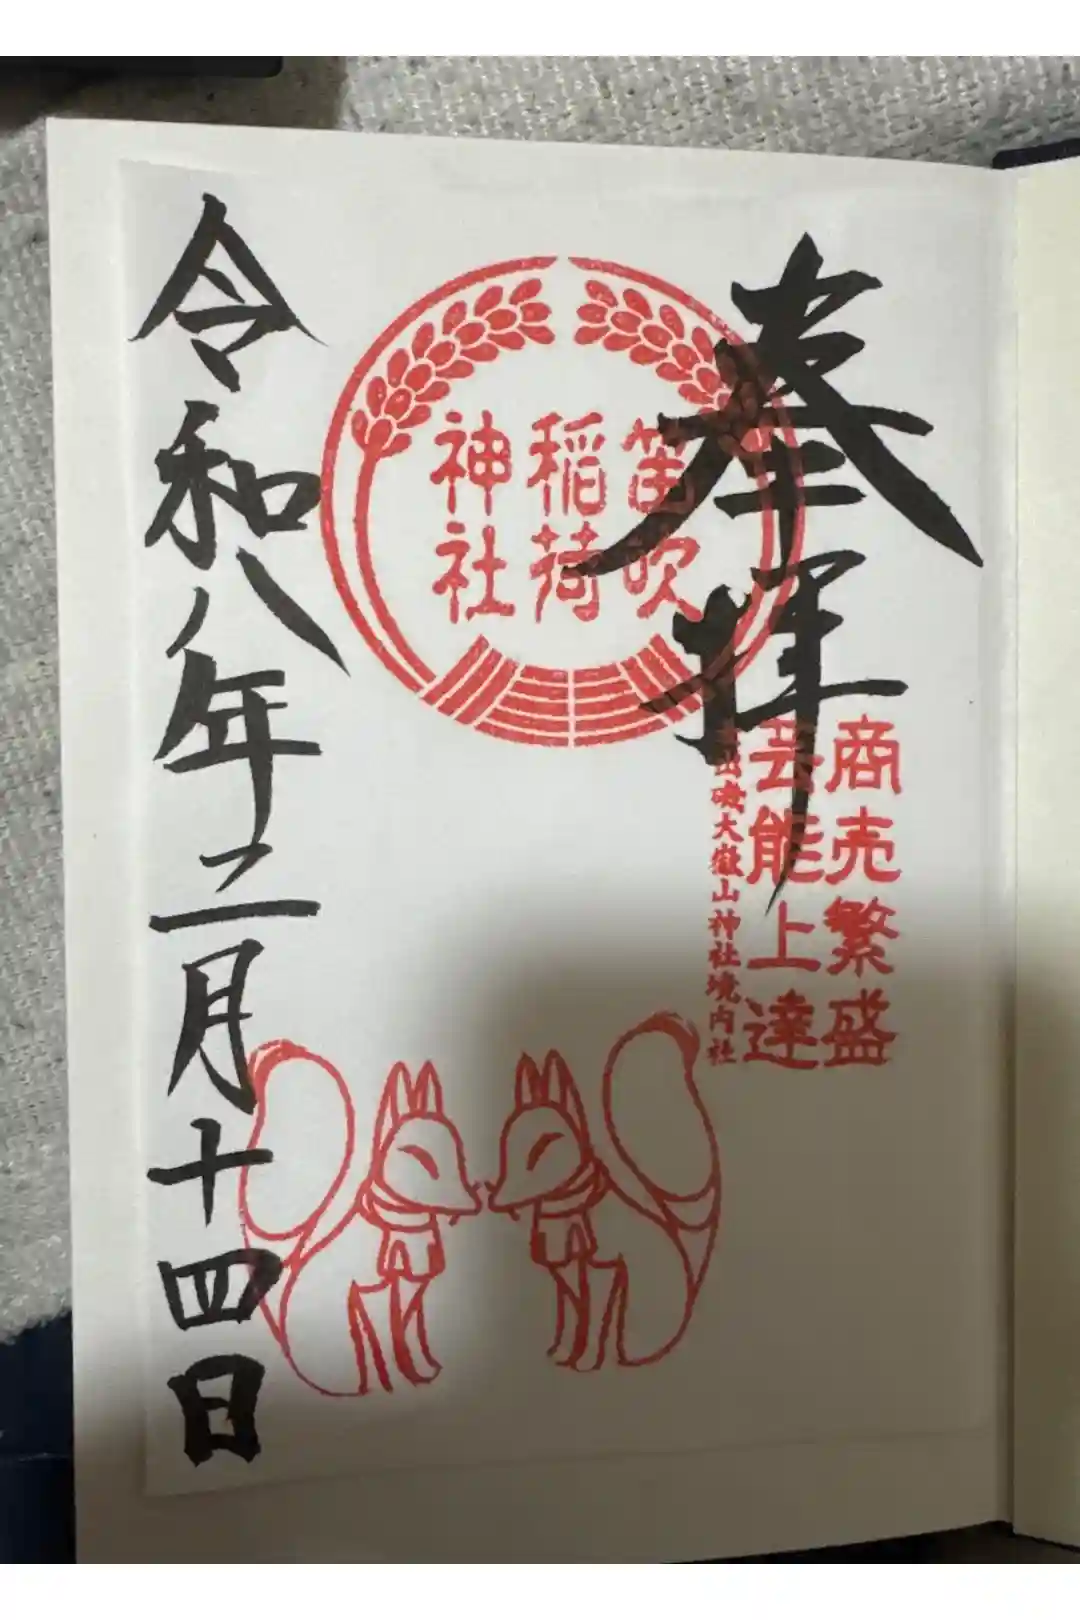 奉拝
商売繁盛
芸能上達
出磯大嶽山神社境内社
笛吹
稲荷
神社
令和八年二月十四日